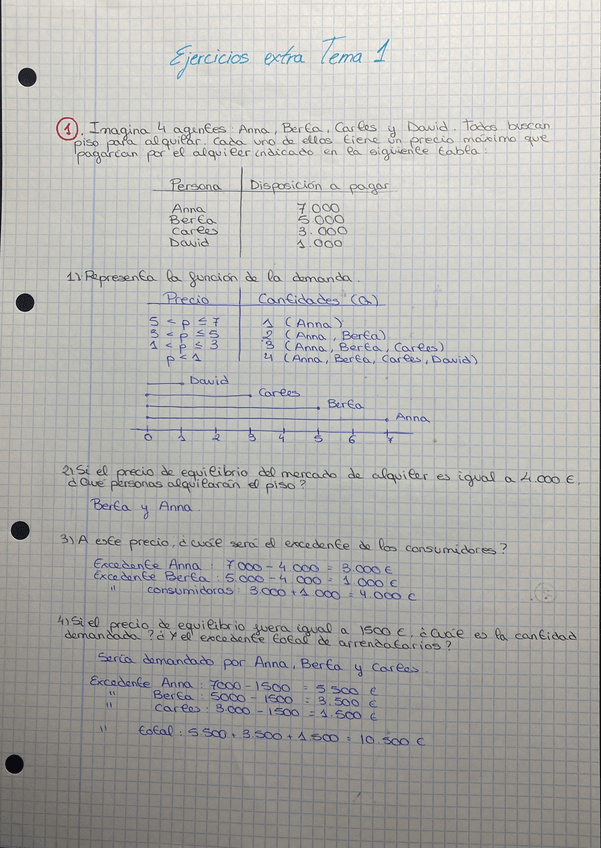 Ejercicios extra Tema 1
1. Imagina 4 agentes: Anna, Berta, Carles y David. Todos buscan
piso para alquilar. Cada uno de ellos tiene un precio máximo que
pagarían por el alquiler indicado en la siguiente tabla:
Persona Disposición a pagar
Anna 7.000
Berta 5.000
Carles 3.000
David 1.000
1) Representa la función de la demanda.
Precio Cantidades (Q)
5 < p ≤ 7 1 (Anna)
3 < p ≤ 5 2 (Anna, Berta)
1 < p ≤ 3 3 (Anna, Berta, Carles)
p < 1 4 (Anna, Berta, Carles, David)
David
Carles
Berta
Anna
0 1 2 3 4 5 6 7
2) Si el precio de equilibrio del mercado de alquiler es igual a 4.000 €.
¿Qué personas alquilarán el piso?
Berta y Anna
3) A este precio, ¿cuál será el excedente de los consumidores?
Excedente Anna: 7000 - 4.000 = 3.000 €
Excedente Berta: 5.000 - 4.000 = 1.000 €
" consumidoras: 3.000 + 1.000 = 4.000 €
4) Si el precio de equilibrio fuera igual a 1500 €, ¿Cuál es la cantidad
demandada? ¿Y el excedente total de arrendatarios?
Sería demandado por Anna, Berta y Carles.
Excedente Anna: 7000 - 1500 = 5.500 €
" Berta: 5000 - 1500 = 3.500 €
" Carles: 3.000 - 1500 = 1.500 €
" total: 5.500 + 3.500 + 1.500 = 10.500 €